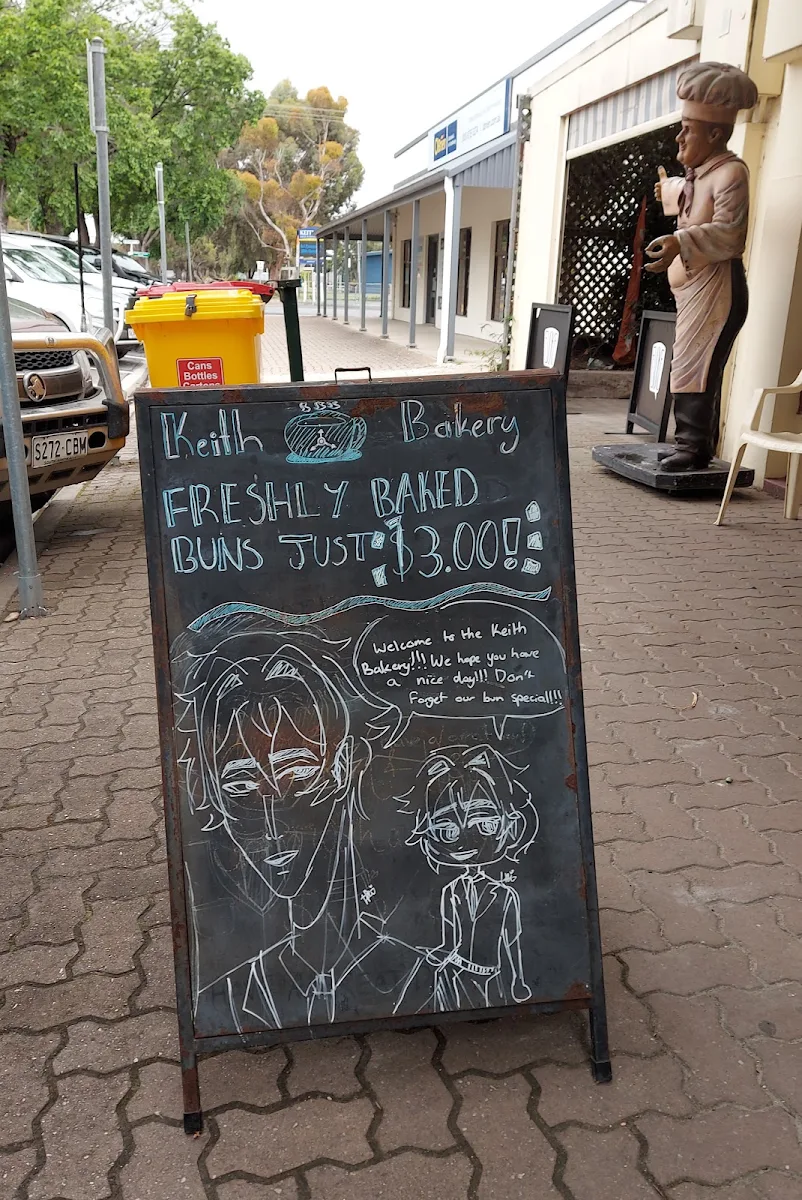 Keith Bakery
FRESHLY BAKED
BUNS JUST $3.00!
Welcome to the Keith
Bakery!!! We hope you have
a nice day!!! Don't
forget our bun special!!!
Cans
Bottles
Cartons
S272·CBM